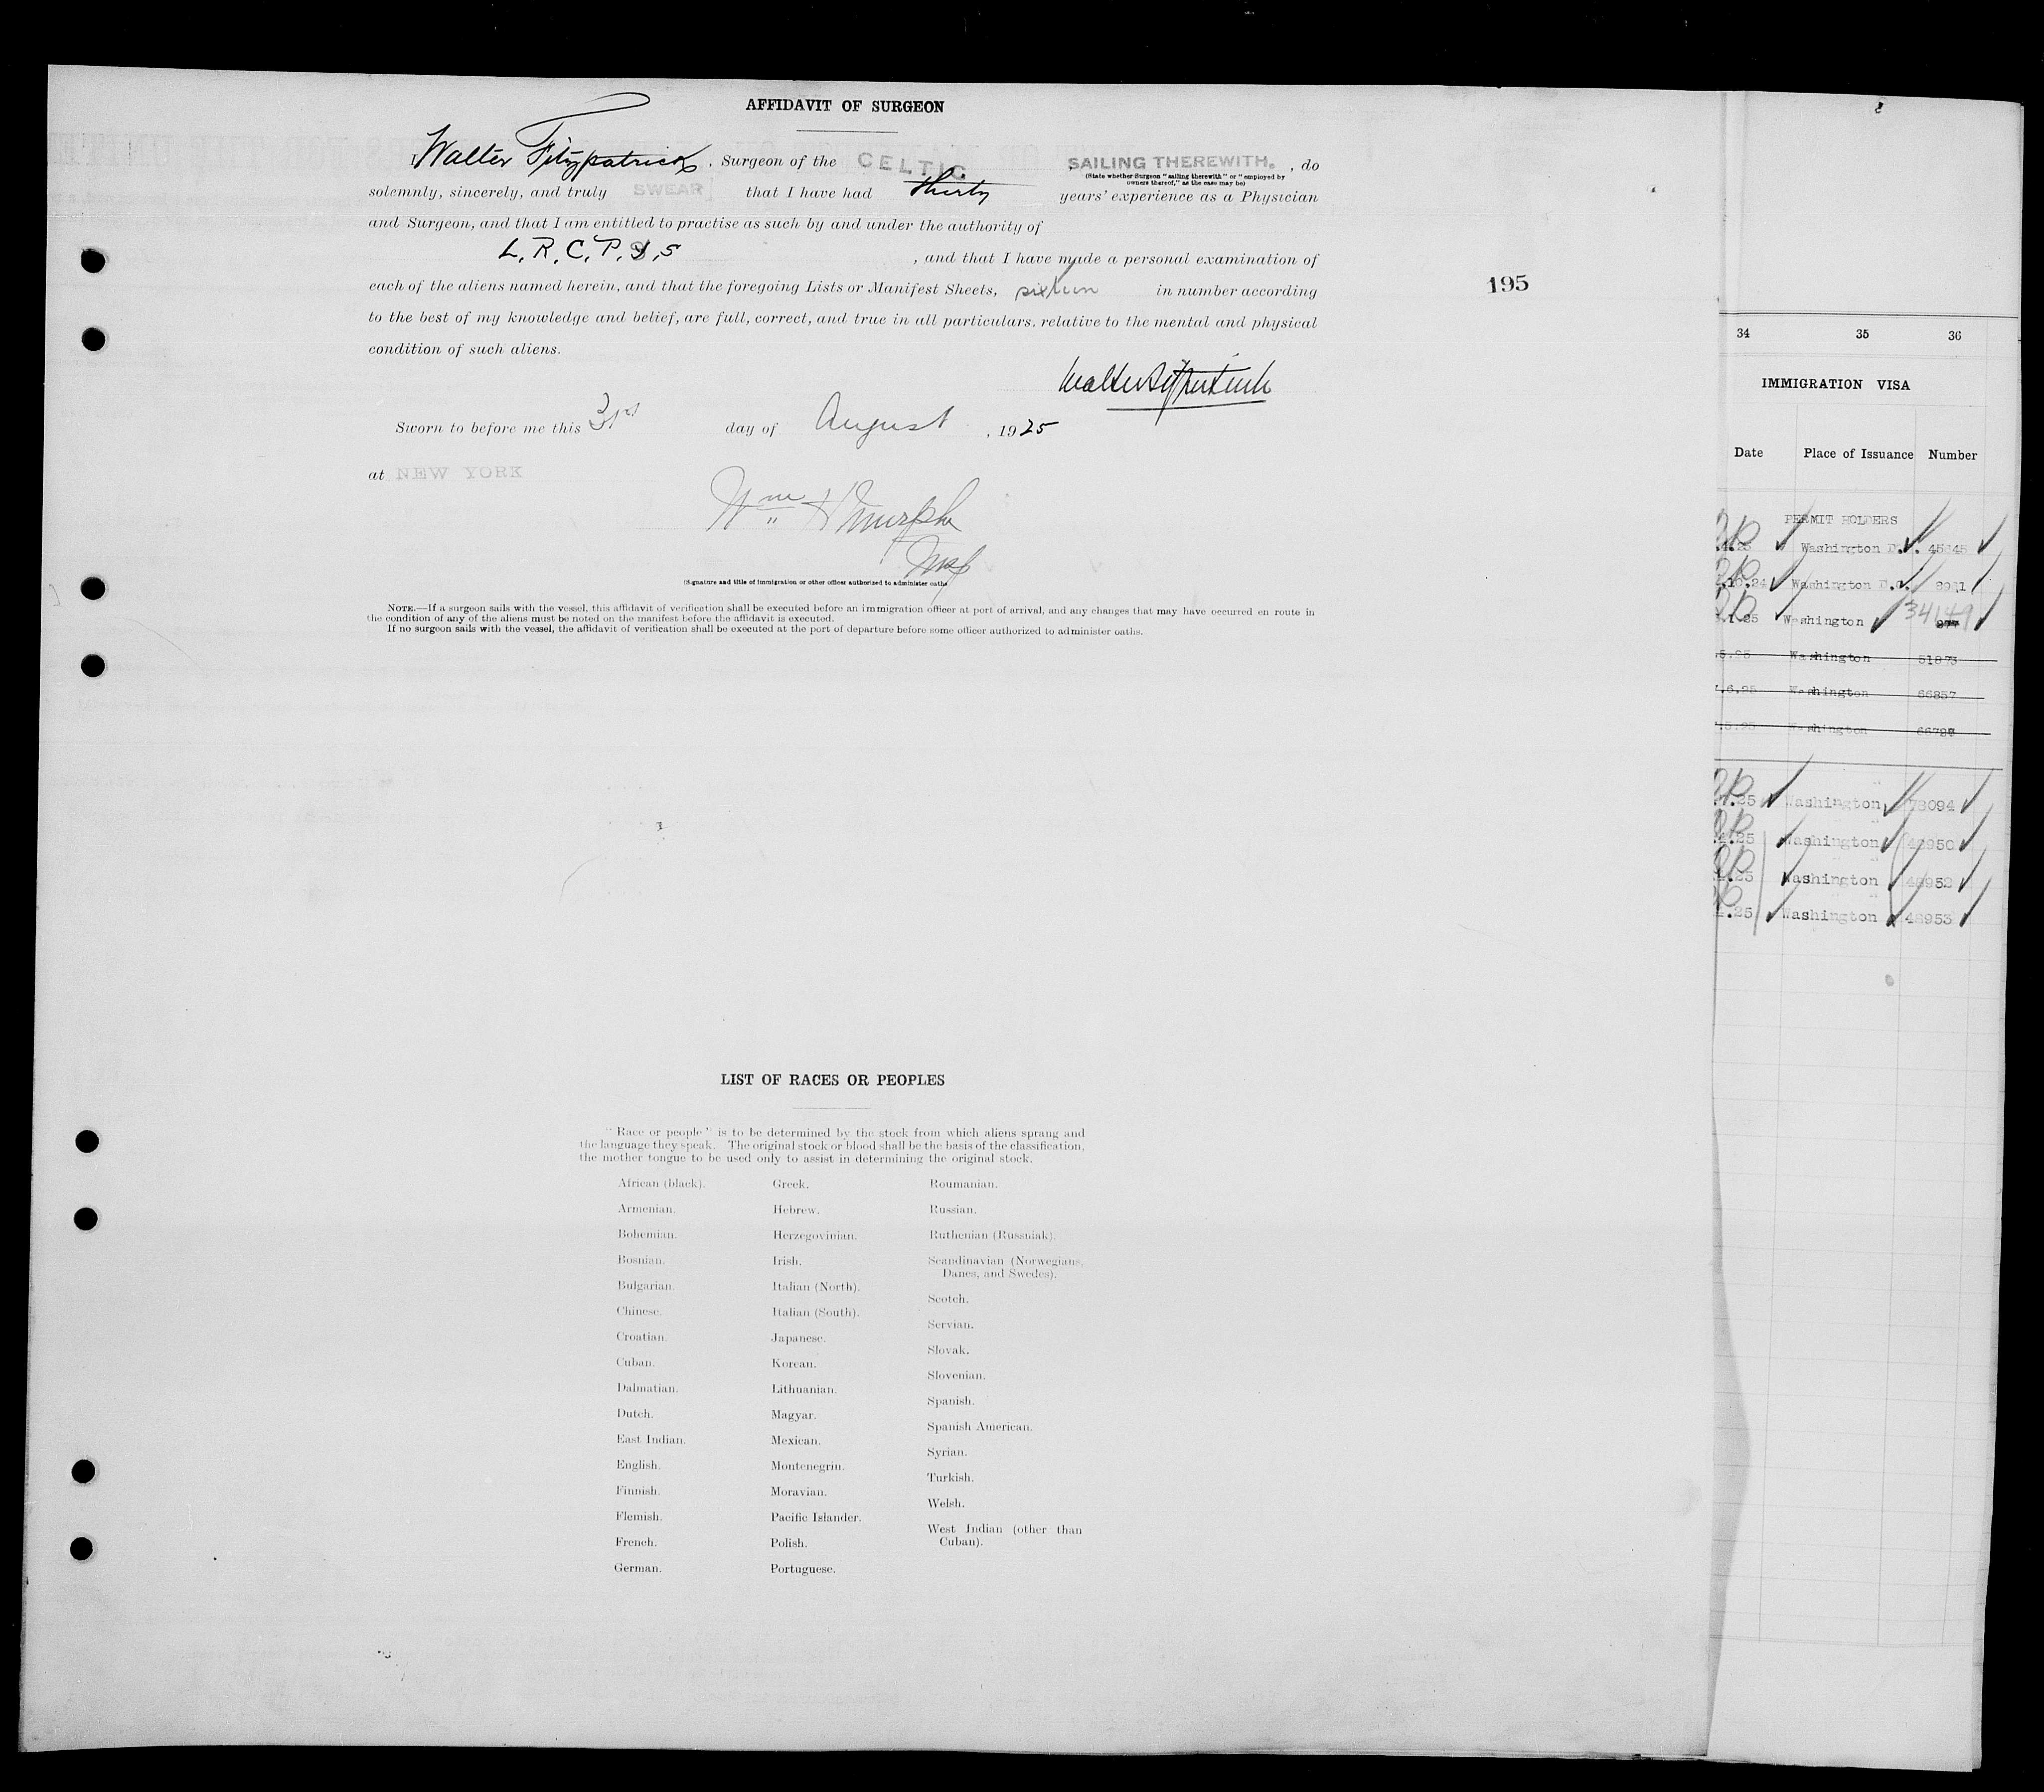 AFFIDAVIT OF SURGEON
I, Walter Fitzpatrick, Surgeon of the CELTIC SAILING THEREWITH. , do
(State whether Surgeon "sailing therewith" or "employed by
owners thereof," as the case may be)
solemnly, sincerely, and truly SWEAR that I have had thirty years' experience as a Physician
and Surgeon, and that I am entitled to practise as such by and under the authority of
L. R. C. P. & S , and that I have made a personal examination of
each of the aliens named herein, and that the foregoing Lists or Manifest Sheets, sixteen in number according
to the best of my knowledge and belief, are full, correct, and true in all particulars. relative to the mental and physical
condition of such aliens.
Walter Fitzpatrick
Sworn to before me this 31st day of August , 1925
at NEW YORK
Wm H Murphy
Insp
(Signature and title of immigration or other officer authorized to administer oaths
NOTE.—If a surgeon sails with the vessel, this affidavit of verification shall be executed before an immigration officer at port of arrival, and any changes that may have occurred en route in
the condition of any of the aliens must be noted on the manifest before the affidavit is executed.
If no surgeon sails with the vessel, the affidavit of verification shall be executed at the port of departure before some officer authorized to administer oaths.
195
LIST OF RACES OR PEOPLES
"Race or people" is to be determined by the stock from which aliens sprang and
the language they speak. The original stock or blood shall be the basis of the classification,
the mother tongue to be used only to assist in determining the original stock.
African (black).
Armenian.
Bohemian.
Bosnian.
Bulgarian.
Chinese.
Croatian.
Cuban.
Dalmatian.
Dutch.
East Indian.
English.
Finnish.
Flemish.
French.
German.
Greek.
Hebrew.
Herzegovinian.
Irish.
Italian (North).
Italian (South).
Japanese.
Korean.
Lithuanian.
Magyar.
Mexican.
Montenegrin.
Moravian.
Pacific Islander.
Polish.
Portuguese.
Roumanian.
Russian.
Ruthenian (Russniak).
Scandinavian (Norwegians,
Danes, and Swedes).
Scotch.
Servian.
Slovak.
Slovenian.
Spanish.
Spanish American.
Syrian.
Turkish.
Welsh.
West Indian (other than
Cuban).
34 35 36
IMMIGRATION VISA
Date Place of Issuance Number
PERMIT HOLDERS
Washington D.C. 45845
Washington D.C.
.1.25 Washington 34149
5.25 Washington 51873
.6.25 Washington 66857
.5.25 Washington
.25 Washington 78094
.25 Washington 48950
.25 Washington 48952
.25 Washington 48953